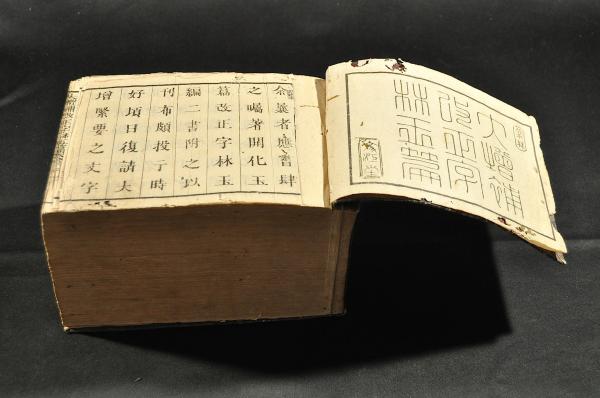 大增補
改正字
林玉篇
余曩者應書肆
之囑著開化玉
篇改正字林玉
編二書附之以
刊布頗投于時
好頃日復請大
增緊要之文字